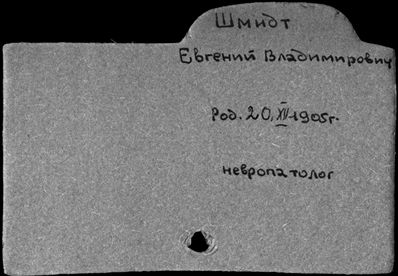 Шмидт
Евгений Владимирович
Род. 20.XII 1905г.
невропатолог